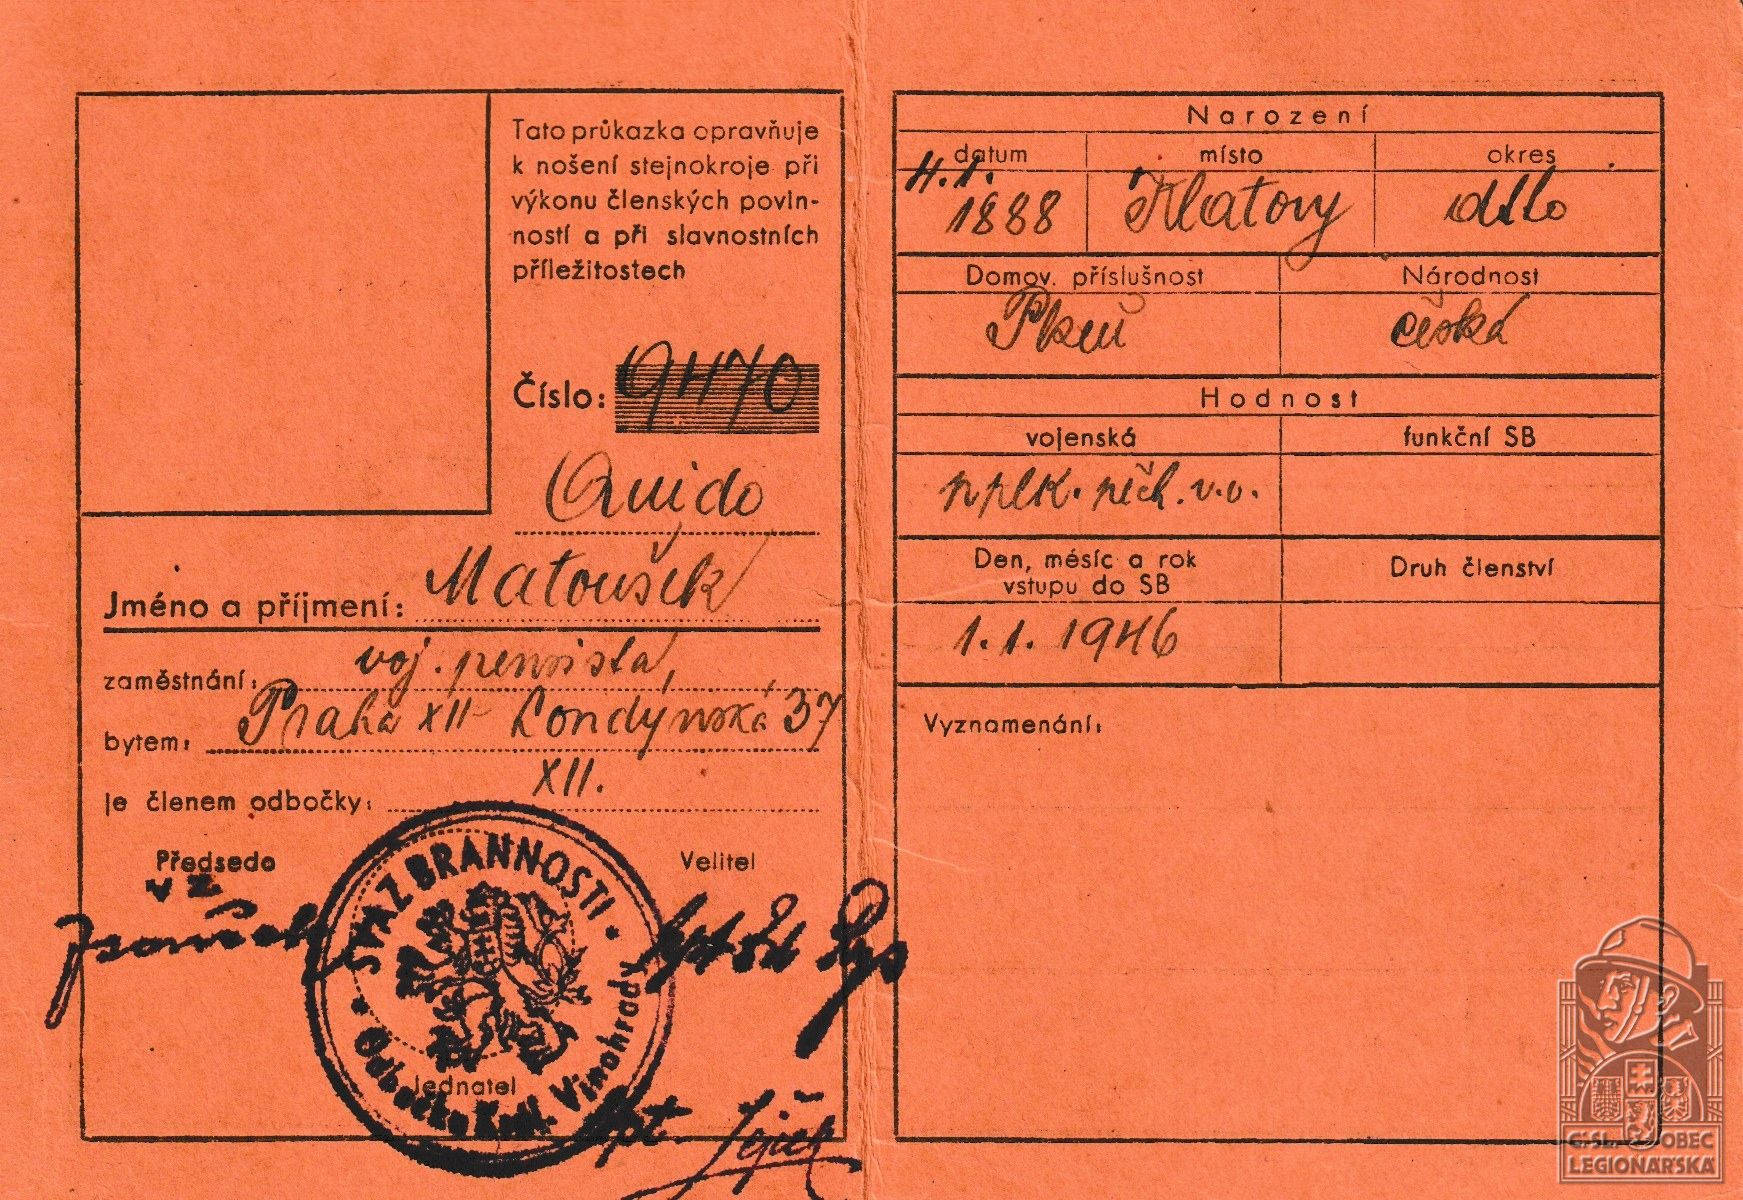 Tato průkazka opravňuje
k nošení stejnokroje při
výkonu členských povin-
ností a při slavnostních
příležitostech
Číslo: 9470
Quido
Jméno a příjmení: Matoušek
zaměstnání: voj. pensista,
bytem: Praha XII - Londýnská 37
je členem odbočky: XII.
Předseda
Velitel
vz
SVAZ BRANNOSTI
Odbočka Král. Vinohrady
Jednatel
kpt. Ježek
Narození
datum místo okres
4.1.
1888 Klatovy dtto
Domov. příslušnost Národnost
Plzeň česká
Hodnost
vojenská funkční SB
pplk. pěch. v.v.
Den, měsíc a rok
vstupu do SB
Druh členství
1.1. 1946
Vyznamenání:
Č.SL. OBEC
LEGIONÁŘSKÁ